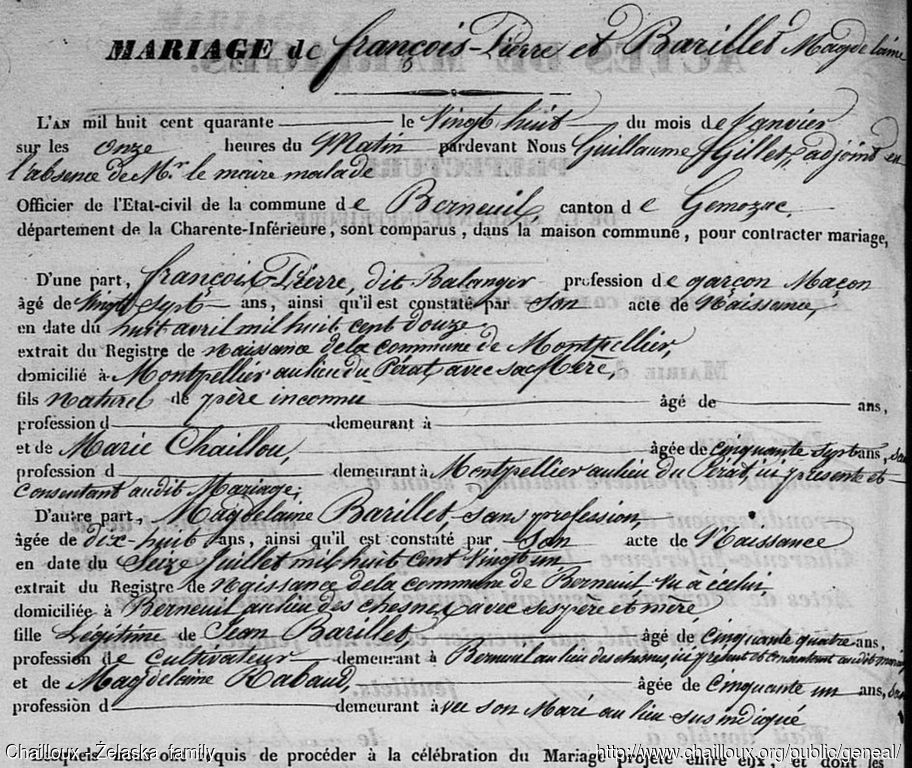 MARIAGE de françois-Pierre et Barillet Magdelaine
L'AN mil huit cent quarante le Vingt huit du mois de Janvier
sur les onze heures du Matin pardevant Nous Guillaume Gillet, adjoint en
l'absence de Mr. le maire malade
Officier de l'Etat-civil de la commune de Berneuil canton de Gemozac.
département de la Charente-Inférieure, sont comparus, dans la maison commune, pour contracter mariage,
D'une part, françois Pierre, dit Balanger profession de garçon Maçon
âgé de Vingt Sept ans, ainsi qu'il est constaté par Son acte de Naissance,
en date du huit avril mil huit cent douze
extrait du Registre de Naissance de la commune de Montpellier,
domicilié à Montpellier au lieu du Pérat, avec sa Mère,
fils Naturel de père inconnu âgé de ans,
profession d demeurant à
et de Marie Chaillou, âgée de Cinquante Sept ans, sans
profession d demeurant à Montpellier au lieu du Pérat, ici présente et
Consentant audit Mariage;
D'autre part, Magdelaine Barillet, sans profession,
âgée de dix-huit ans, ainsi qu'il est constaté par Son acte de Naissance
en date du Seize Juillet mil huit Cent Vingt un
extrait du Registre de Naissance de la Commune de Berneuil vu a icelui
domiciliée à Berneuil au lieu des chesnes, avec ses père et mère
fille Légitime de Jean Barillet, âgé de Cinquante quatre ans,
profession de Cultivateur demeurant à Berneuil au lieu des chesnes, ici présent et Consentant audit mariage
et de Magdelaine Rabaud, âgée de Cinquante un ans, sans
profession d demeurant avec son Mari au lieu sus indiqué
Lesquels nous ont requis de procéder à la célébration du Mariage projeté entre eux, et dont les
Chailloux - Żelaska family http://www.chailloux.org/public/geneal/